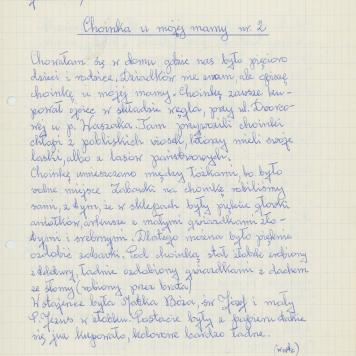 Choinka u mojej mamy nr. 2
Chowałam się w domu gdzie nas było pięcioro
dzieci i rodzice, Dziadków nie znam, ale opiszę
choinkę u mojej mamy. Choinkę zawsze ku-
pował ojciec w składzie węgla, przy ul. Dworco-
wej u p. Waszaka. Tam przywozili choinki
chłopi z pobliskich wiosek, którzy mieli swoje
laski, albo z lasów państwowych.
Choinkę umieszczano między łóżkami, bo było
wolne miejsce. Zabawki na choinkę robiliśmy
sami, z tym, że w sklepach były piękne główki
aniołków, arkusze z małymi gwiazdkami zło-
tymi i srebrnymi. Dlatego można było pięknie
ozdobić zabawki. Pod choinką stał żłobek zrobiony
z tektury, ładnie ozdobiony gwiazdkami z dachem
ze słomy (robiony przez brata)
W stajence była Matka Boża, św Józef i mały
P. Jezus w żłobku. Postacie były z papieru
się już kupowało, kolorowe bardzo ładne.